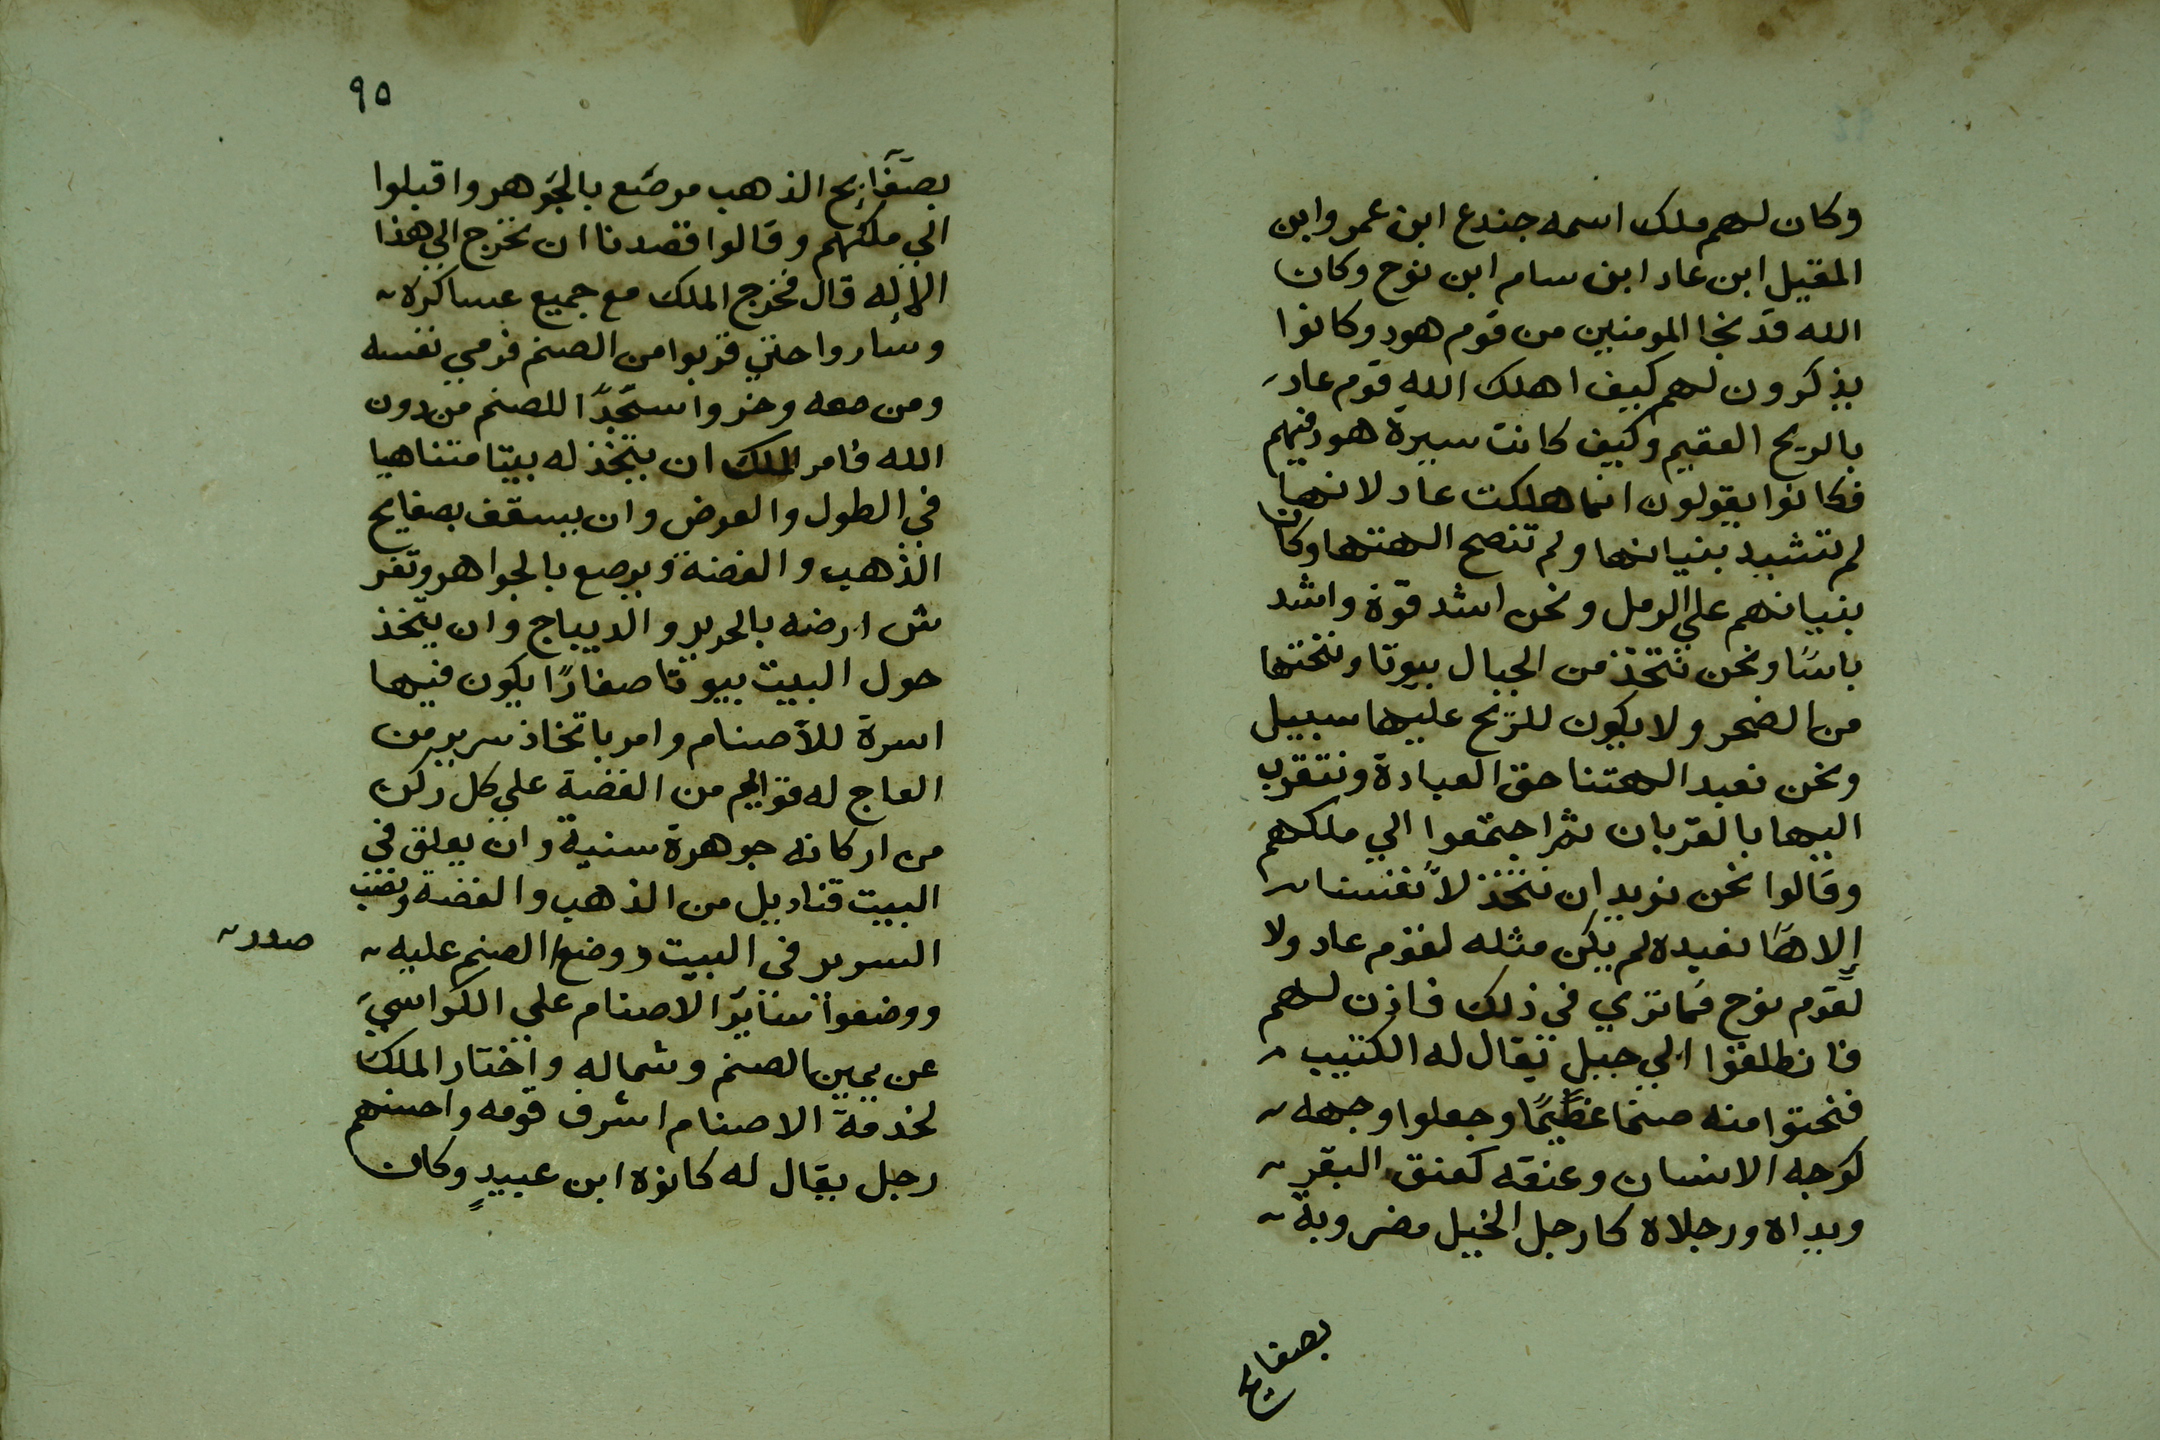 وكان لهم ملك اسمه جندع ابن عمر وابن
المقيل ابن عاد ابن سام ابن نوح وكان
الله قد نجا المومنين من قوم هود وكانوا
يذكرون لهم كيف اهلك الله قوم عاد
بالريح العقيم وكيف كانت سيرة هود فيهم
فكانوا يقولون انما هلكت عاد لانها
لم تشيد بنيانها ولم تنصح الهتها وكان
بنيانهم علي الرمل ونحن اشد قوة واشد
باسًا ونحن نتخذ من الجبال بيوتا وننحتها
من الصخر ولا يكون للريح عليها سبيل
ونحن نعبد الهتنا حق العبادة ونتقرب
اليها بالقربان ثم اجتمعوا الي ملكهم
وقالوا نحن نريد ان نتخذ لأنفسنا
إلاهًا نعبده لم يكن مثله لقوم عاد ولا
لقوم نوح فما تري في ذلك فاذن لهم
فانطلقوا الي جبل يقال له الكثيب
فنحتوا منه صنمًا عظيمًا وجعلوا وجهه
كوجه الانسان وعنقه كعنق البقر
ويداه ورجلاه كارجل الخيل مضروبة
بصفايح
٩٥
بصفآئح الذهب مرصّع بالجوهر واقبلوا
الي ملكهم وقالوا قصدنا ان نخرج الي هذا
الإله قال فخرج الملك مع جميع عساكره
وساروا حتي قربوا من الصنم فرمي نفسه
ومن معه وخروا سجّدًا للصنم من دون
الله فامر الملك ان يتخذ له بيتا متناهيا
في الطول والعرض وان يسقف بصفايح
الذهب والفضة ويرصع بالجواهر وتفر
ش ارضه بالحرير والديباج وان يتخذ
حول البيت بيوتا صغارًا يكون فيها
اسرة للأصنام وامر باتخاذ سرير من
العاج له قوايم من الفضة علي كل ركن
من اركانه جوهرة سنية وان يعلق في
البيت قناديل من الذهب والفضة ونصب
السرير في البيت ووضع الصنم عليه
صدر
ووضعوا سائر الاصنام علي الكواسي
عن يمين الصنم وشماله واختار الملك
لخدمة الاصنام اشرف قومه واحسنهم
رجل يقال له كانوه ابن عبيدٍ وكان